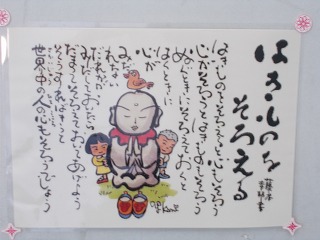 はきものを
そろえる
藤本幸邦
はきものをそろえると心もそろう
心がそろうとはきものもそろう
ぬぐときにそろえておくと
はくときに
心が
みだれない
だれかが
みだしておいたら
だまってそろえておいてあげよう
そうすればきっと
世界中の人の心もそろうでしょう